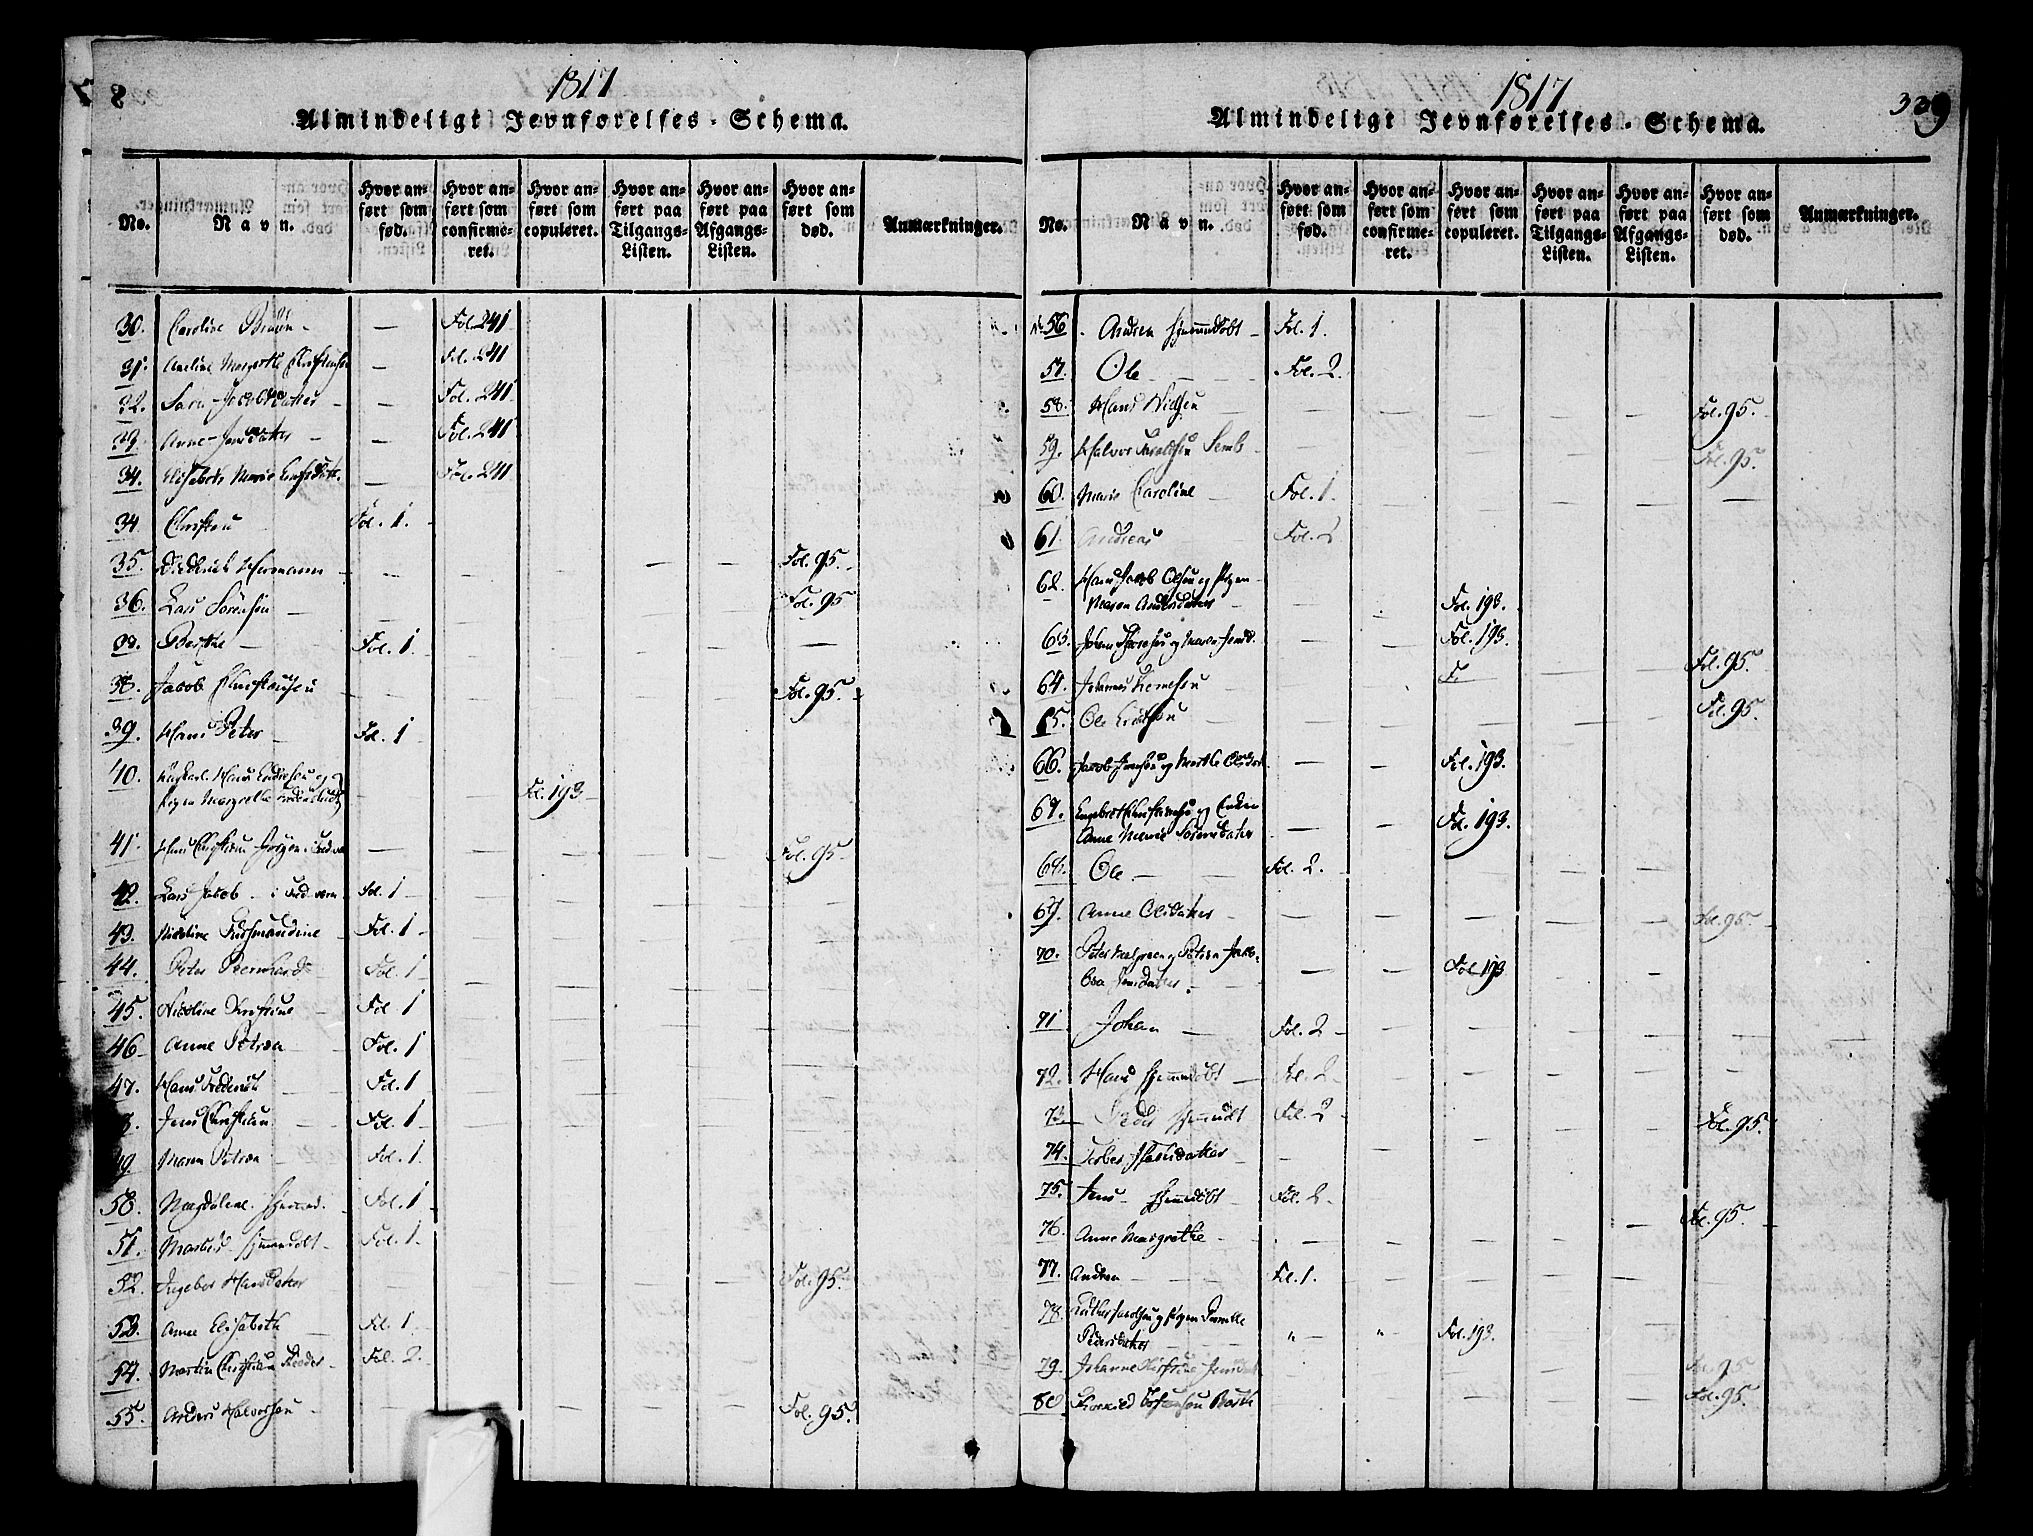 8
1817
Almindeligt Jevnførelses-Schema.
No.
Navn.
Hvor anført som fød.
Hvor anført som confirmeret.
Hvor anført som copuleret.
Hvor anført paa Tilgangs-Listen.
Hvor anført paa Afgangs-Listen.
Hvor anført som død.
Anmærkninger.
30. Caroline Bruun - — Fol. 241
31. Aneline Margrethe Christensen — Fol. 241
32. Sara Jacobsdatter - — Fol. 241
33. Anne Jensdatter - — Fol. 241
34. Elisabeth Marie — Fol. 241
34. Christen Fol. 1.
35. Diderich Hermann Fol. 95.
36. Lars Sørensen Fol. 95
37. Berthe Fol. 1.
38. Jacob Christensen Fol. 95.
39. Hans Peter Fol. 1
40. Ungkarl Hans og
Pigen Margrethe Fol. 193
41. Hans Christian Fol. 95.
42. Lars Jacob Fol. 1
43. Nicoline Fol. 1
44. Peter Bernhard Fol. 1
45. Nicoline Kirstine Fol. 1
46. Anne Petrea Fol. 1
47. Hans Frederich Fol. 1
8. Jens Christian Fol. 1
49. Maren Petrea Fol. 1.
50. Magdalene Hjemmed. Fol. 1
51. Hjemmedøbt Fol. 1
52. Ingebor Hansdatter Fol. 95.
53. Anne Elisabeth Fol. 1
54. Martin Christian Peder Fol. 2
55. Anders Halvorsen Fol. 95.
1817
339
Almindeligt Jevnførelses-Schema.
No.
Navn.
Hvor anført som fød.
Hvor anført som confirmeret.
Hvor anført som copuleret.
Hvor anført paa Tilgangs-Listen.
Hvor anført paa Afgangs-Listen.
Hvor anført som død.
Anmærkninger.
No 56 Andrea Hjemmedøbt Fol. 1.
57. Ole Fol. 2.
58. Hans Nielsen Fol. 95.
59. Halvor Semb Fol. 95.
60. Maren Caroline Fol. 1.
61. Andreas Fol. 2
62. Hans Jacob Olsen og Pigen
Maren Andersdatter Fol. 193.
63. Johan og Maren Jensd. Fol. 193.
64. Johannes F. Fol. 95.
65. Ole Fol. 95.
66. Jacob Jensen og Marthe Olsdat. Fol. 193.
67. Engebret Christensen og Enken
Anne Marie Sørensdatter Fol. 193.
68. Ole Fol. 2.
69. Anne Olsdatter Fol. 95
70. Peter og Petrea Jaco-
bea Jensdatter. Fol. 193
71 Johan Fol. 2
72. Hans Hjemmedøbt Fol. 2
73 Peder Hjemmedøbt Fol. 2
74. Hansdatter Fol. 95.
75. Jens Hjemmedøbt Fol. 2
76. Anne Margrethe Fol. 95.
77. Andrea Fol. 1.
78. og Pigen Pernille
Pedersdatter " " Fol. 193.
79. Johanne Kirstine Fol. 95
80 Barth Fol. 95.